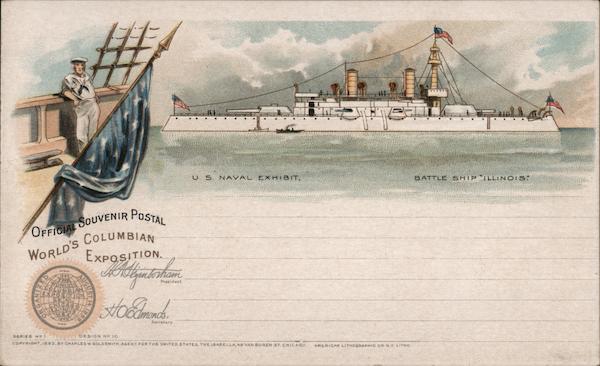 U. S. NAVAL EXHIBIT.
BATTLE SHIP "ILLINOIS."
OFFICIAL SOUVENIR POSTAL
WORLD'S COLUMBIAN
EXPOSITION.
H N Higinbotham
President.
H O Edmonds.
Secretary
SERIES Nº 1. DESIGN Nº 10.
COPYRIGHT, 1893, BY CHARLES W. GOLDSMITH, AGENT FOR THE UNITED STATES, THE ISABELLA, 46 VAN BUREN ST. CHICAGO. AMERICAN LITHOGRAPHIC CO. N.Y. LITHO.